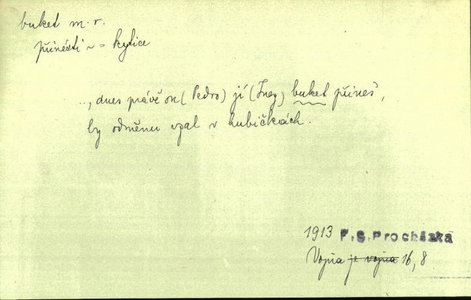 buket m. r.
přinésti ~ = kytice
..., dnes právě on (Pedro) jí (Inez) buket přines',
by odměnu vzal v hubičkách.
1913 F. S. Procházka
Vojna je vojna 16, 8